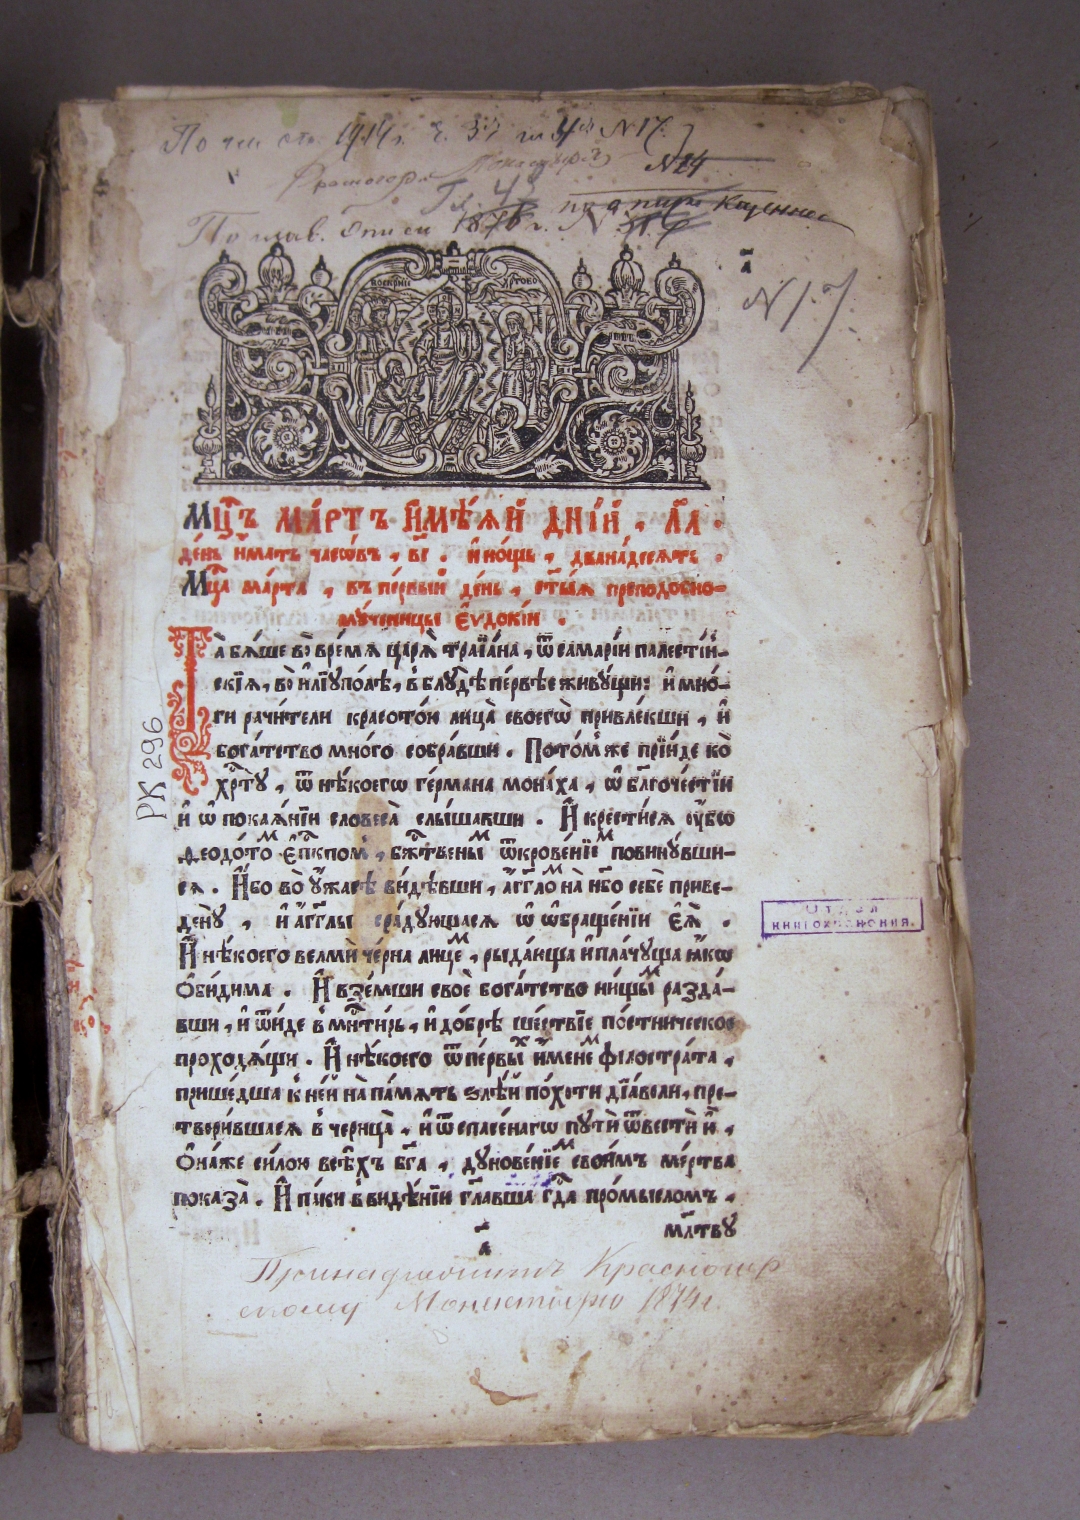 По оп. 1914 г. № 17.
№ 24
Гл. 43
По глав. описи 1876 г. №
воскрⷭ҇нїе хрⷭ҇тово
а҃
№ 17.
Мцⷭ҇ъ ма́ртъ и҆мѣ́ѧй дні́й , л҃а .
де́нь и҆́мать часѡ́въ , в҃і . и҆ но́щь , двана́десѧть .
Мцⷭ҇а ма́рта , въ пе́рвый де́нь , ст҃ы́ѧ преподобно-
мꙋ́ченицы є҆ѵдокі́и .
Та̀ бѧ́ше во̀ вре́мѧ царѧ̀ траїа́на , ѿ самарі́и палестї́н-
скїѧ , во̀ и҆лїꙋпо́лѣ , в блꙋ́дѣ пе́рвѣе живꙋ́щи : и҆ мнѡ́-
ги рачи́тели красото́ю лица̀ своегѡ̀ привле́кши , и҆
бога́тство мно́го собра́вши . Пото́мже прїи́де ко̀
хрⷭ҇тꙋ̀ , ѿ нѣ́коегѡ ге́рмана мона́ха , ѡ҆ бл҃гоче́стїи
и҆ ѡ҆ покаѧ́нїи словеса̀ слы́шавши . И҆ крести́сѧ ᲂу҆́бѡ
ѳеодо́томъ є҆пⷭ҇кпомъ , бж҃тве́нымъ ѿкрове́нїемъ повинꙋ́вши-
сѧ . И҆́бо во̀ ᲂу҆́жасѣ ви́дѣвши , а҆́гг҃ломъ на̀ нб҃о себѐ приве-
де́нꙋ , и҆ а҆́гг҃лы сра́дꙋющасѧ ѡ҆ ѡ҆браще́нїи є҆ѧ̀ .
И҆ нѣ́коего велмѝ че́рна лице́мъ , рыда́юща и҆ пла́чꙋща ꙗ҆́кѡ
ѻ҆би́дима . И҆ взе́мши своѐ бога́тство ни́щымъ разда́-
вши , и҆ ѿи́де в мⷭ҇нти́рь , и҆ до́брѣ ше́ствїе по́стническое
проходѧ́щи . И҆ нѣ́коего ѿ пе́рвыхъ и҆́менемъ філостра́та ,
прише́дша к не́й на̀ па́мѧть ѕлѣ́й по́хоти дїа́воли , пре-
твори́вшасѧ в черица̀ , и҆ ѿ спасе́нагѡ пꙋтѝ ѿвестѝ и҆̀ ,
Ѻ҆на́же си́лою всѣ́хъ бг҃а , дꙋнове́нїемъ свои́мъ ме́ртва
показа̀ . И҆ па́ки в видѣ́нїи гл҃авша гдⷭ҇а про́мысломъ ,
мл҃твꙋ
а҃
Принадлежитъ Красногор
скому Монастырю 1874 г.
РК 296
Отдел
книгохранения.